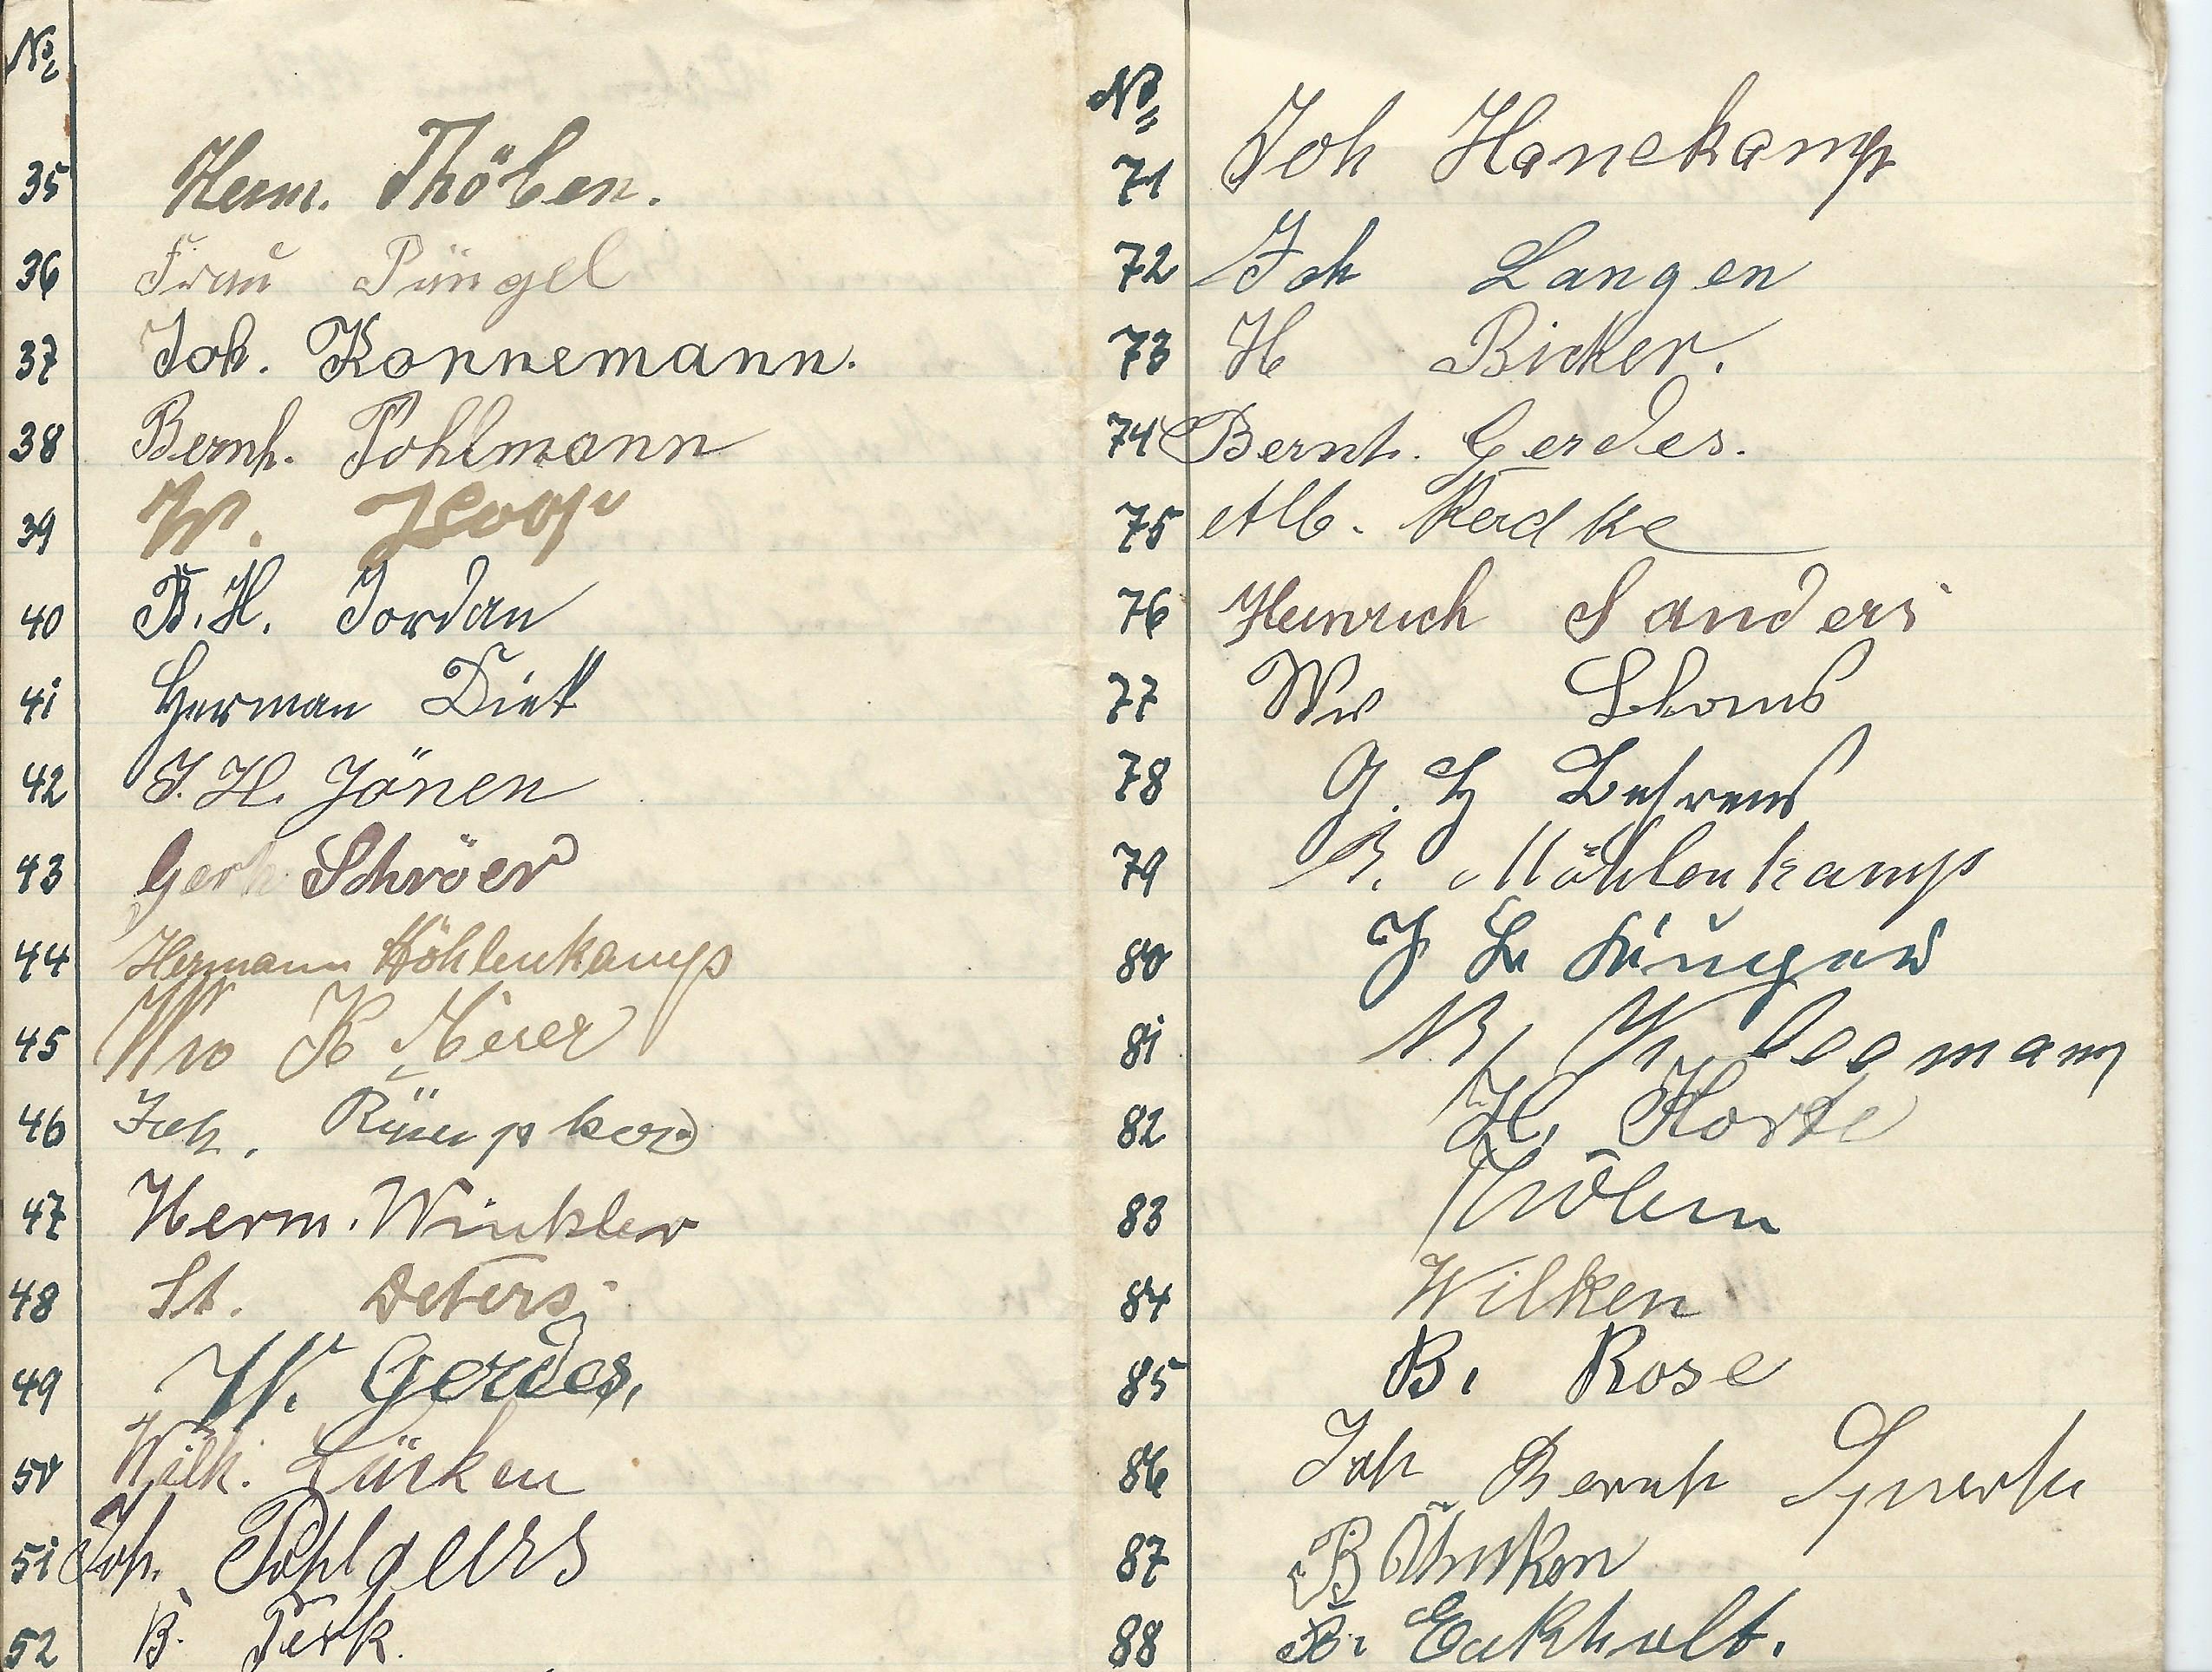 No
35 Herm. Thöben.
36 Frau Püngel
37 Joh. Konnemann.
38 Bernh. Pohlmann
39 W. Hoop
40 B. H. Jordan
41 Herman Diek
42 J. H. Jänen
43 Gerh Schröer
44 Hermann Höhlenkamp
45 Ww K Meier
46 Joh.
47 Herm. Winkler
48 St. Deters
49 W. Gerdes.
50 Wilh. Lücken
51 Joh. Pohlgeers
52 B. Terk.
No
71 Joh Hanekamp
72 Joh Langen
73 H Bicker.
74 Bernh. Gerdes.
75 Alb. Radke
76 Heinrich Sanders
77 Ww
78 G. H Behrens
79 B. Möhlenkamp
80 J
81
82 H. Korte
83
84 Wilken
85 B. Rose
86 Joh Bernh
87 B
88 B. Eakholt.